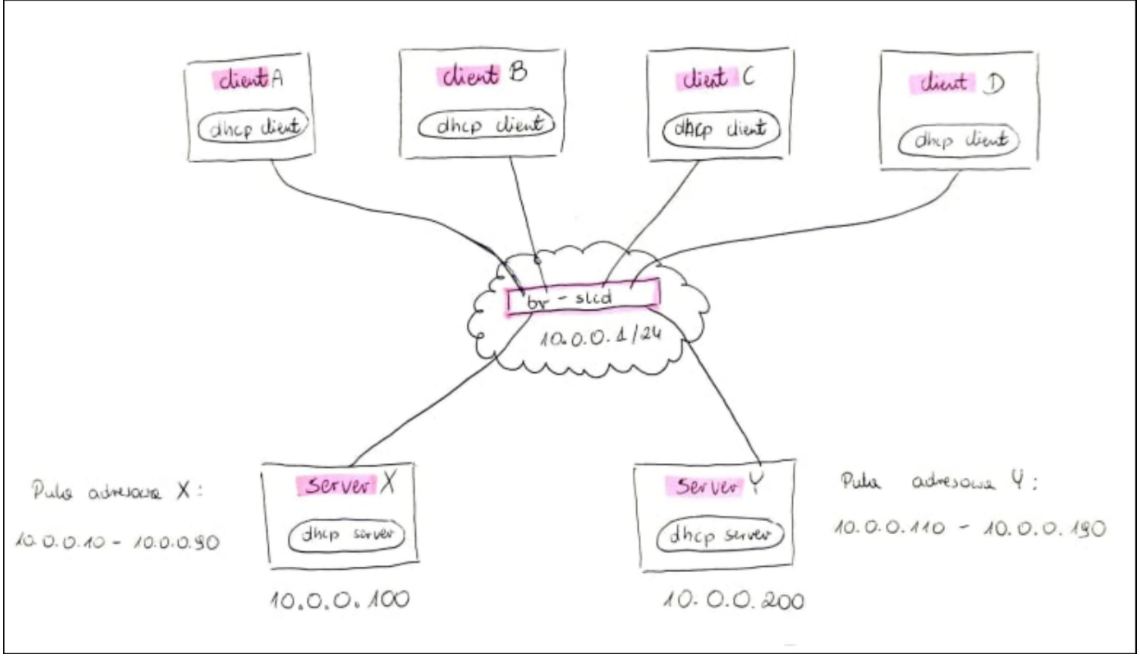 client A
dhcp client
client B
dhcp client
client C
dhcp client
client D
dhcp client
br-slcd
10.0.0.1/24
Pula adresowa X:
10.0.0.10 - 10.0.0.90
server X
dhcp server
10.0.0.100
server Y
dhcp server
10.0.0.200
Pula adresowa Y:
10.0.0.110 - 10.0.0.190